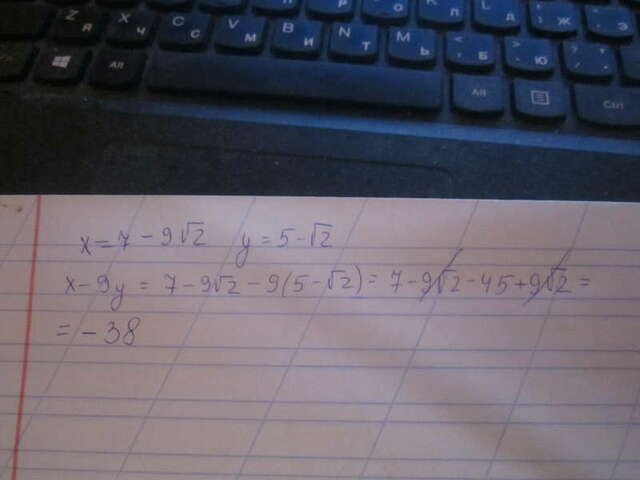 Z Я X Ч C С V М B И N Т M Ь < Б > Ю ? Ж Э
Alt Alt Ctrl
x = 7 - 9√2 y = 5 - √2
x - 9y = 7 - 9√2 - 9(5 - √2) = 7 - 9√2 - 45 + 9√2 =
= -38